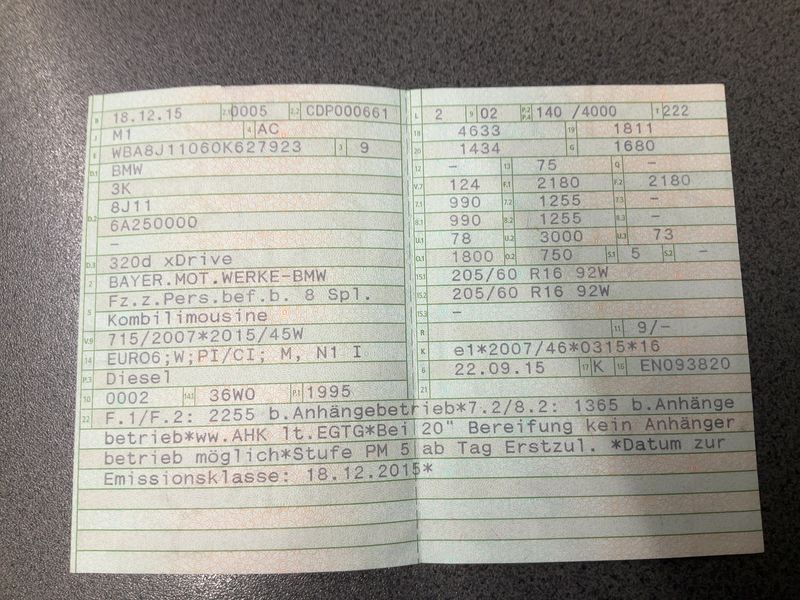 B 18.12.15 2.1 0005 2.2 CDP000661
J M1 4 AC
E WBA8J11060K627923 3 9
D.1 BMW
3K
8J11
D.2 6A250000
–
D.3 320d xDrive
2 BAYER.MOT.WERKE-BMW
Fz.z.Pers.bef.b. 8 Spl.
5 Kombilimousine
V.9 715/2007*2015/45W
14 EURO6;W;PI/CI; M, N1 I
P.3 Diesel
10 0002 14.1 36W0 P.1 1995
L 2 9 02 P.2 P.4 140 /4000 T 222
18 4633 19 1811
20 1434 G 1680
12 – 13 75 Q –
V.7 124 F.1 2180 F.2 2180
7.1 990 7.2 1255 7.3 –
8.1 990 8.2 1255 8.3 –
U.1 78 U.2 3000 U.3 73
O.1 1800 O.2 750 S.1 5 S.2 –
15.1 205/60 R16 92W
15.2 205/60 R16 92W
15.3 –
R 11 9/–
K e1*2007/46*0315*16
6 22.09.15 17 K 16 EN093820
21
22 F.1/F.2: 2255 b.Anhängebetrieb*7.2/8.2: 1365 b.Anhänge
betrieb*ww.AHK lt.EGTG*Bei 20" Bereifung kein Anhänger
betrieb möglich*Stufe PM 5 ab Tag Erstzul. *Datum zur
Emissionsklasse: 18.12.2015*